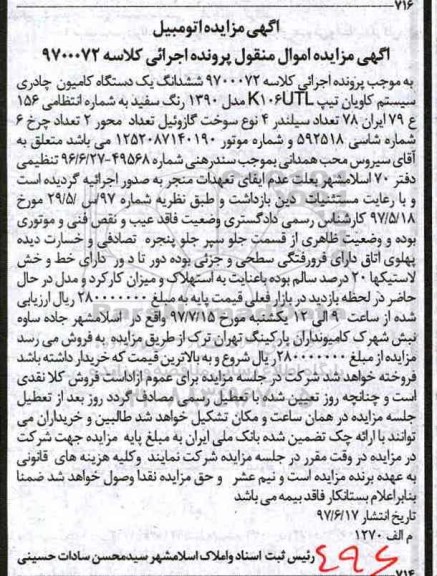 ۷۱۶
آگهی مزایده اتومبیل
آگهی مزایده اموال منقول پرونده اجرائی کلاسه ۹۷۰۰۰۷۲
به موجب پرونده اجرائی کلاسه ۹۷۰۰۰۷۲ ششدانگ یک دستگاه کامیون چادری
سیستم کاویان تیپ K۱۰۶UTL مدل ۱۳۹۰ رنگ سفید به شماره انتظامی ۱۵۶
ع ۷۹ ایران ۷۸ تعداد سیلندر ۴ نوع سوخت گازوئیل تعداد محور ۲ تعداد چرخ ۶
شماره شاسی ۵۹۲۵۱۸ و شماره موتور ۱۲۵۲۰۸۷۱۴۰۱۹۰ می باشد متعلق به
آقای سیروس محب همدانی بموجب سندرهنی شماره ۴۹۵۶۸-۹۶/۶/۲۷ تنظیمی
دفتر ۷۰ اسلامشهر بعلت عدم ایفای تعهدات منجر به صدور اجرائیه گردیده است
و با رعایت مستثنیات دین بازداشت و طبق نظریه شماره ۹۷/س/۲۹/۵ مورخ
۹۷/۵/۱۸ کارشناس رسمی دادگستری وضعیت فاقد عیب و نقص فنی و موتوری
بوده و وضعیت ظاهری از قسمت جلو سپر جلو پنجره تصادفی و خسارت دیده
پهلوی اتاق دارای فرورفتگی سطحی و جزئی بوده دور تا دور دارای خط و خش
لاستیکها ۲۰ درصد سالم بوده باعنایت به استهلاک و میزان کارکرد و مدل در حال
حاضر در لحظه بازدید در بازار فعلی قیمت پایه به مبلغ ۲۸۰۰۰۰۰۰۰ ریال ارزیابی
شده از ساعت ۹ الی ۱۲ یکشنبه مورخ ۹۷/۷/۱۵ واقع در اسلامشهر جاده ساوه
نبش شهرک کامیونداران پارکینگ تهران ترک از طریق مزایده به فروش می رسد
مزایده از مبلغ ۲۸۰۰۰۰۰۰۰ ریال شروع و به بالاترین قیمت که خریدار داشته باشد
فروخته خواهد شد شرکت در جلسه مزایده برای عموم ازاداست فروش کلا نقدی
است و چنانچه روز تعیین شده با تعطیل رسمی مصادف گردد روز بعد از تعطیل
جلسه مزایده در همان ساعت و مکان تشکیل خواهد شد طالبین و خریداران می
توانند با ارائه چک تضمین شده بانک ملی ایران به مبلغ پایه مزایده جهت شرکت
در مزایده در وقت مقرر در جلسه مزایده شرکت نمایند وکلیه هزینه های قانونی
به عهده برنده مزایده است و نیم عشر و حق مزایده نقدا وصول خواهد شد ضمنا
بنابراعلام بستانکار فاقد بیمه می باشد
تاریخ انتشار ۹۷/۶/۱۷
م الف ۱۲۷۰
رئیس ثبت اسناد واملاک اسلامشهر سیدمحسن سادات حسینی
۴۹۶
۷۱۴